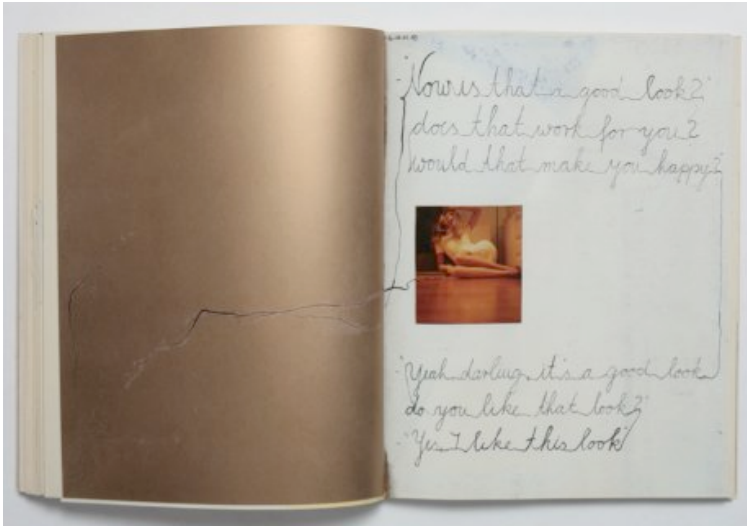 'Now is that a good look?'
does that work for you?
would that make you happy?'
'Yeah darling, it's a good look
do you like that look?'
'Yes I like this look'